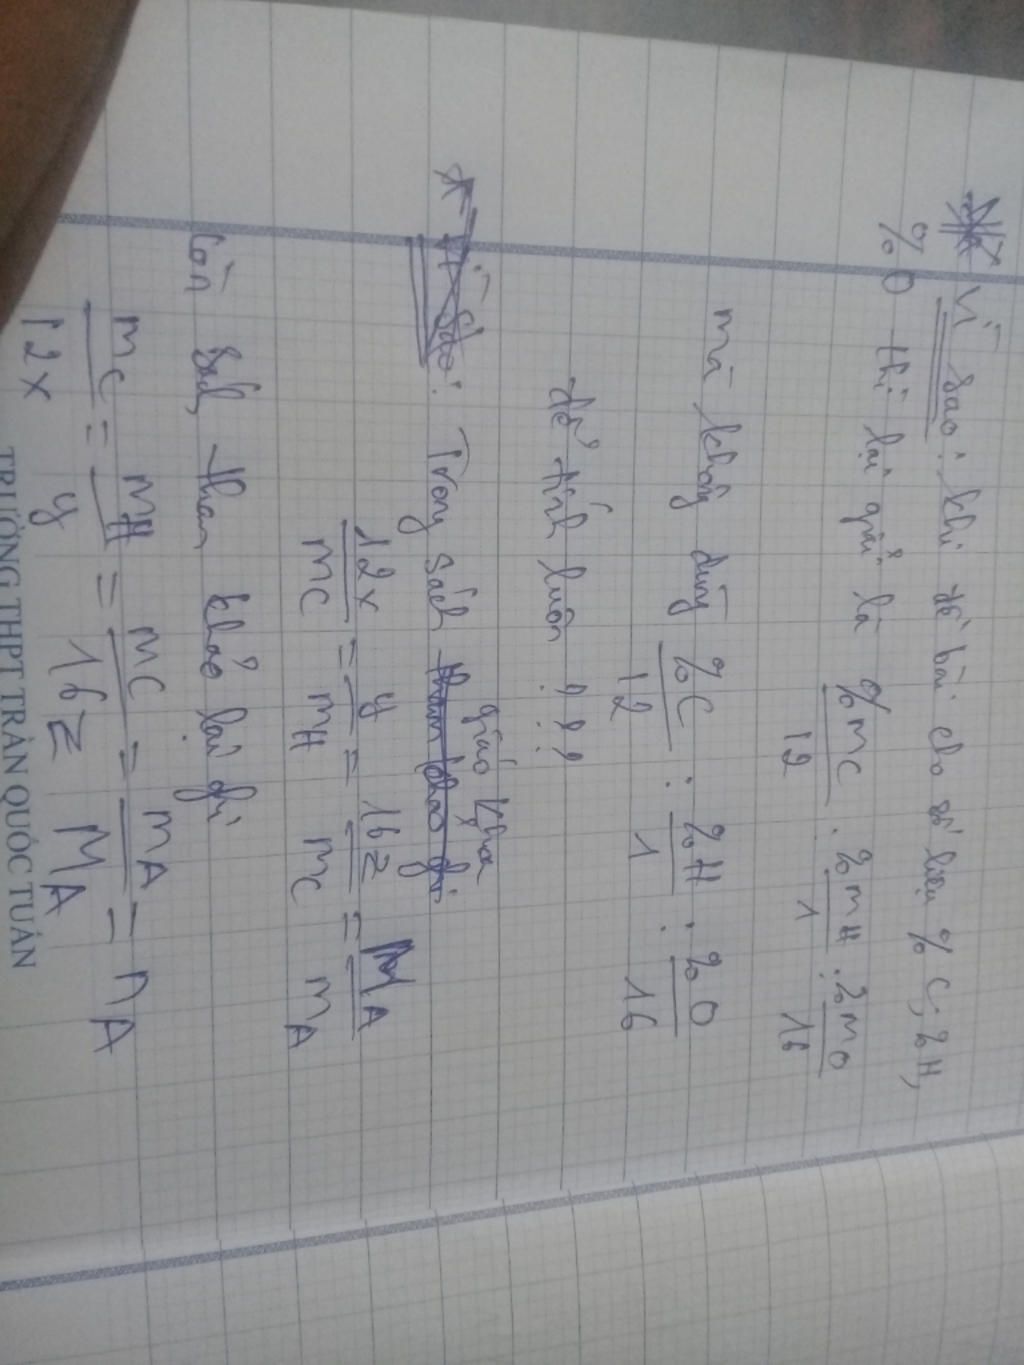 * Vì sao: khi đề bài cho số liệu %C, %H,
%O thì lại giải là %mC/12 : %mH/1 : %mO/16
mà không dùng %C/12 : %H/1 : %O/16
để tính luôn ???
* Vì sao: Trong sách tham khảo ghi giáo khoa
12x/mC = y/mH = 16z/mC = MA/mA
Còn sách tham khảo lại ghi
mC/12x = mH/y = mC/16z = mA/MA = nA
TRƯỜNG THPT TRẦN QUỐC TUẤN